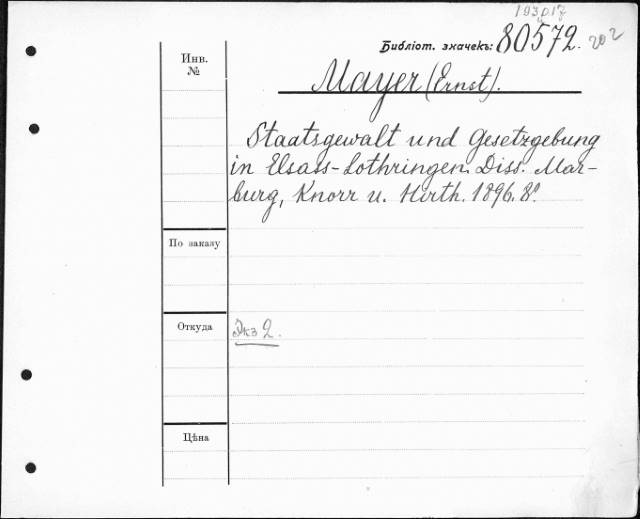 Библіот. значекъ: 80572. 202
Инв.
№
Mayer (Ernst).
Staatsgewalt und Gesetzgebung
in Elsass-Lothringen. Diss. Mar-
burg, Knorr u. Hirth. 1896. 8º.
По заказу
Откуда
Экз 2.
Цѣна